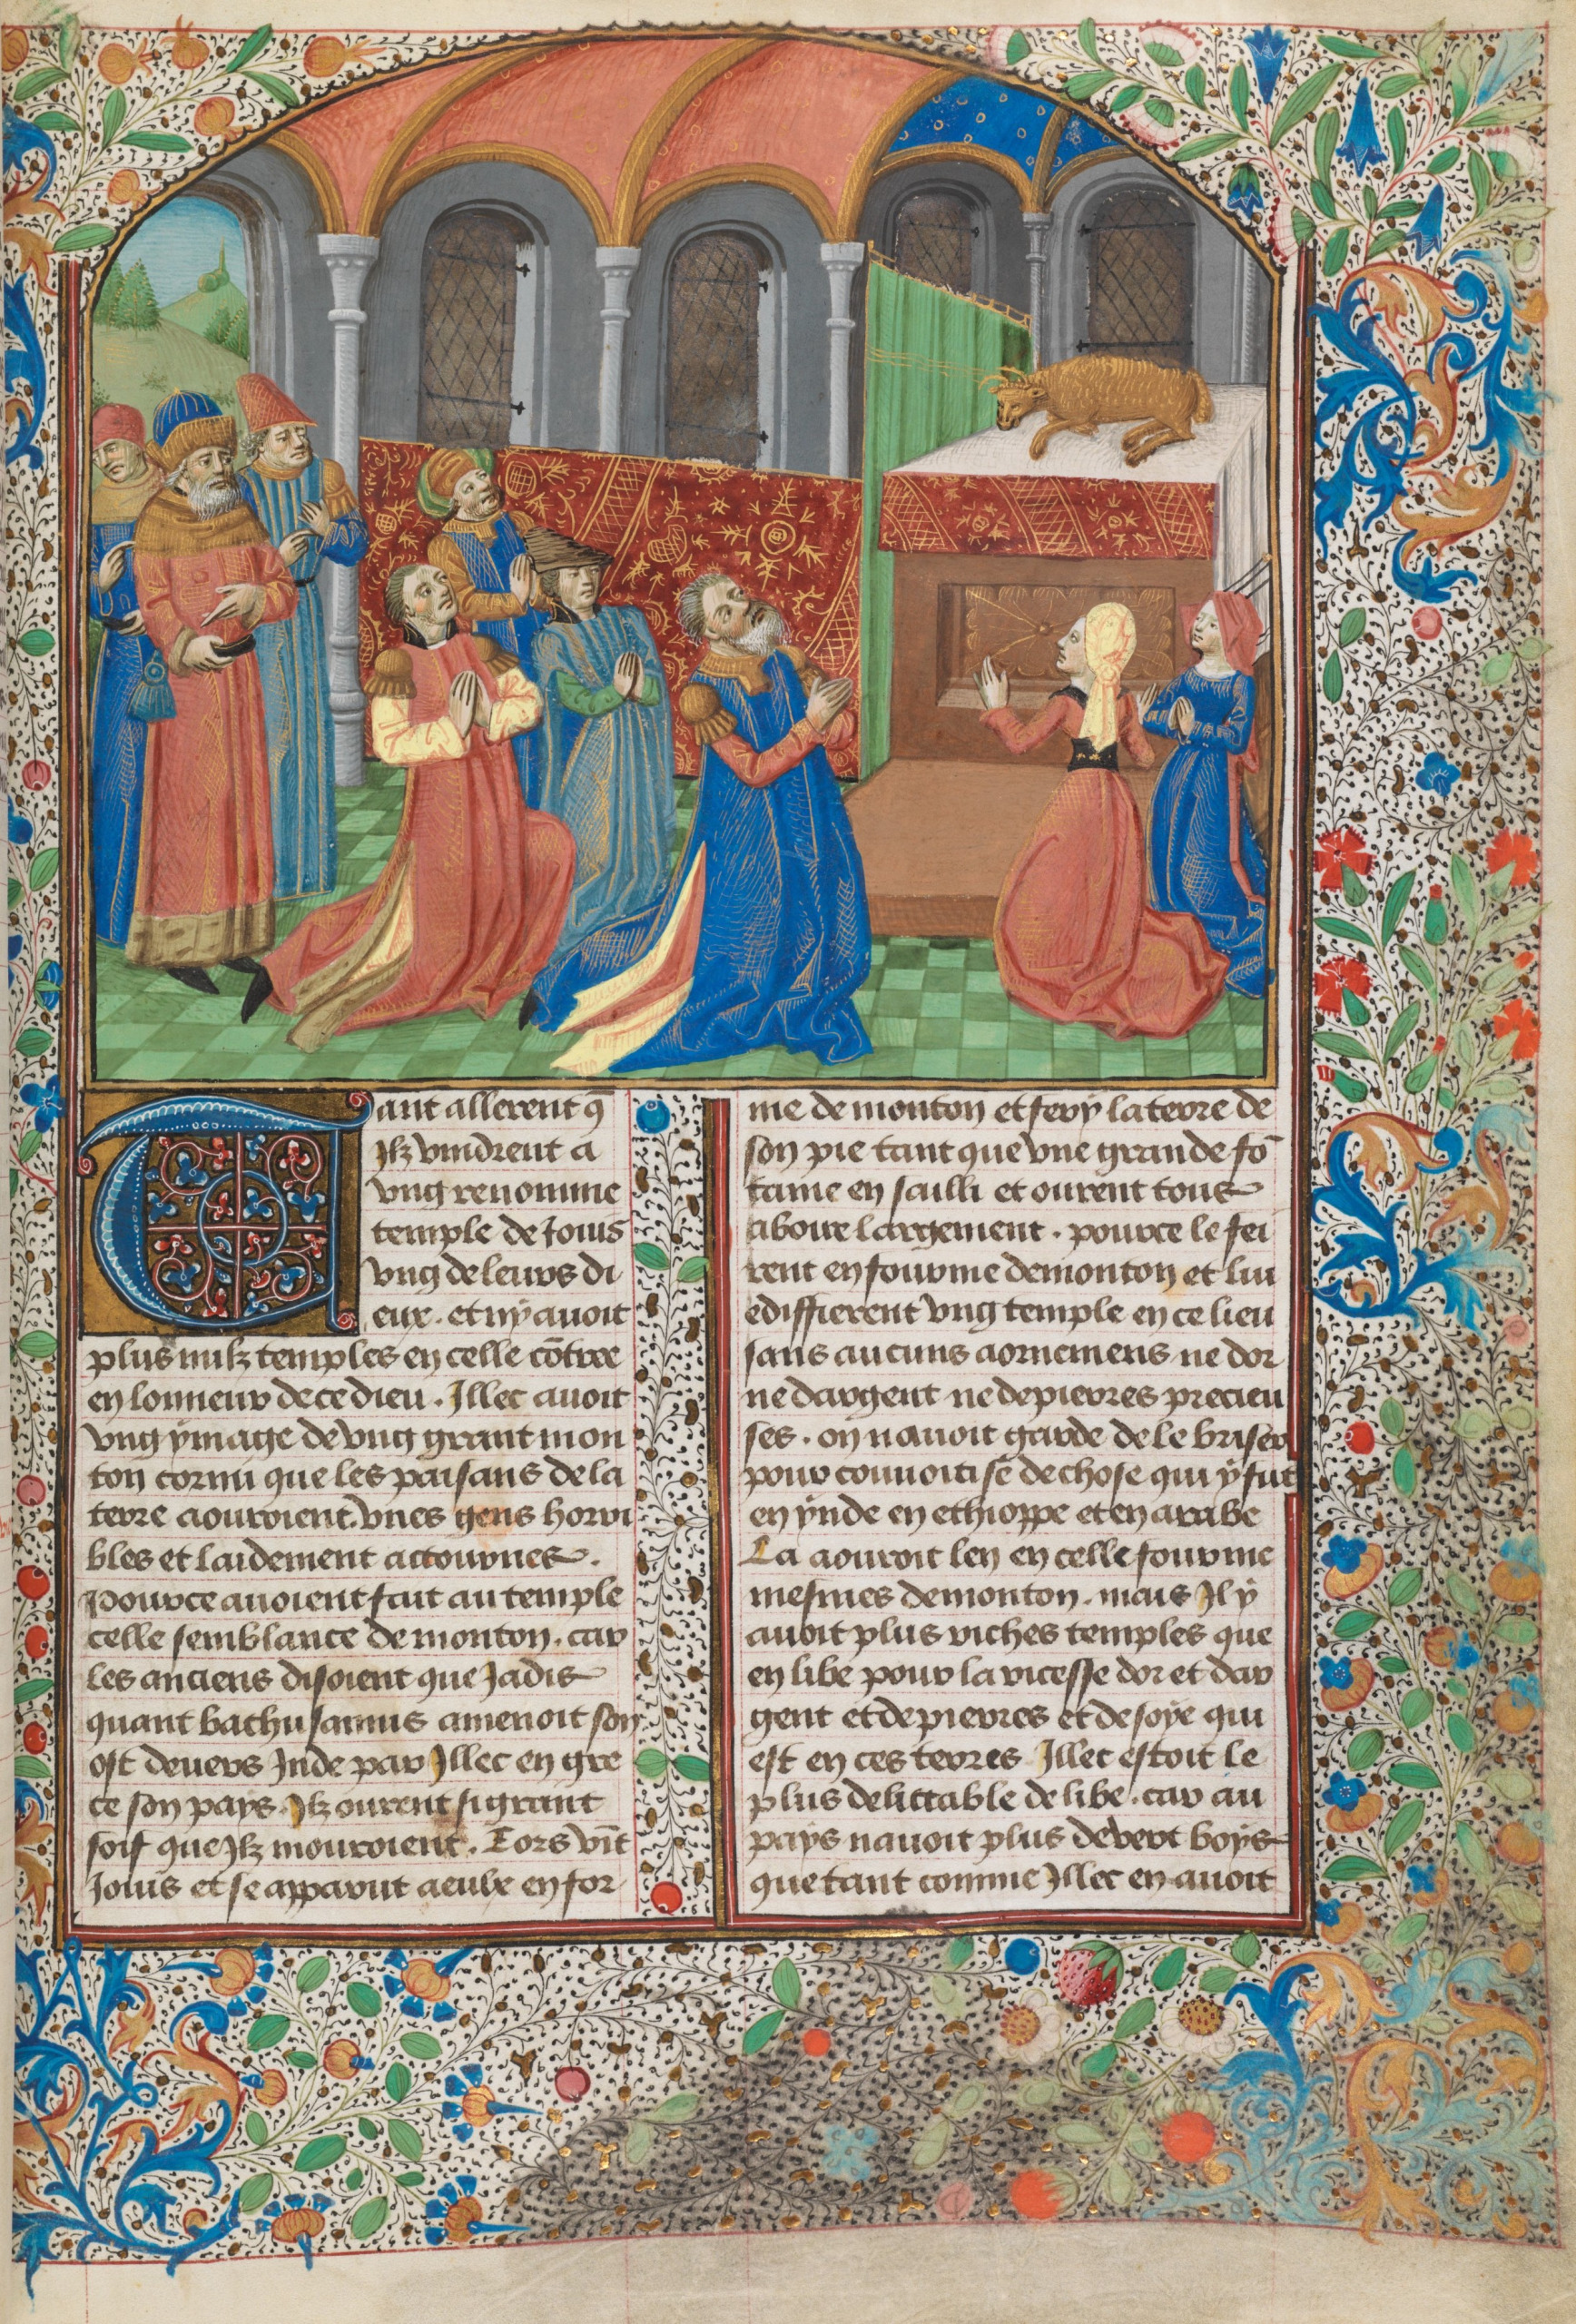 Tant allerent q̄
Ilz vindrent a
vng renomme
temple de Jouis
vng de leurs di
eux. et ny auoit
plus nulz temples en celle cōtree
en lonneur de ce dieu. Illec auoit
vng ymage de vng grant mon
ton cornu que les paisans de la
terre aouroient. vnes gens horri
bles et laidement attournes.
Pource auoient fait au temple
celle semblance de monton. car
les anciens disoient que Jadis
quant bachus amenoit son
ost deuers Inde par Illec en gre
ce son pays. Ilz ourent si grant
soif que Ilz mouroient. Lors vīt
Jouis et se apparut a eulx en for
me de monton et fery la terre de
son pie tant que vne grande fō
taine en sailli et ourent tous
aboire largement. pource le fei
rent en fourme de monton et lui
ediffierent vng temple en ce lieu
sans aucuns aornemens ne dor
ne dargent ne de pierres precieu
ses. on nauoit garde de le briser
pour couuoitise de chose qui y fut
en ynde en ethioppe et en arabe
La aouroit len en celle fourme
mesmes de monton. mais Il y
auoit plus riches temples que
en libe pour la ricesse dor et dar
gent et de pierres et de soye qui
est en ces terres Illec estoit le
plus delittable de libe. car au
pays nauoit plus de vert boys
que tant comme Illec en auoit